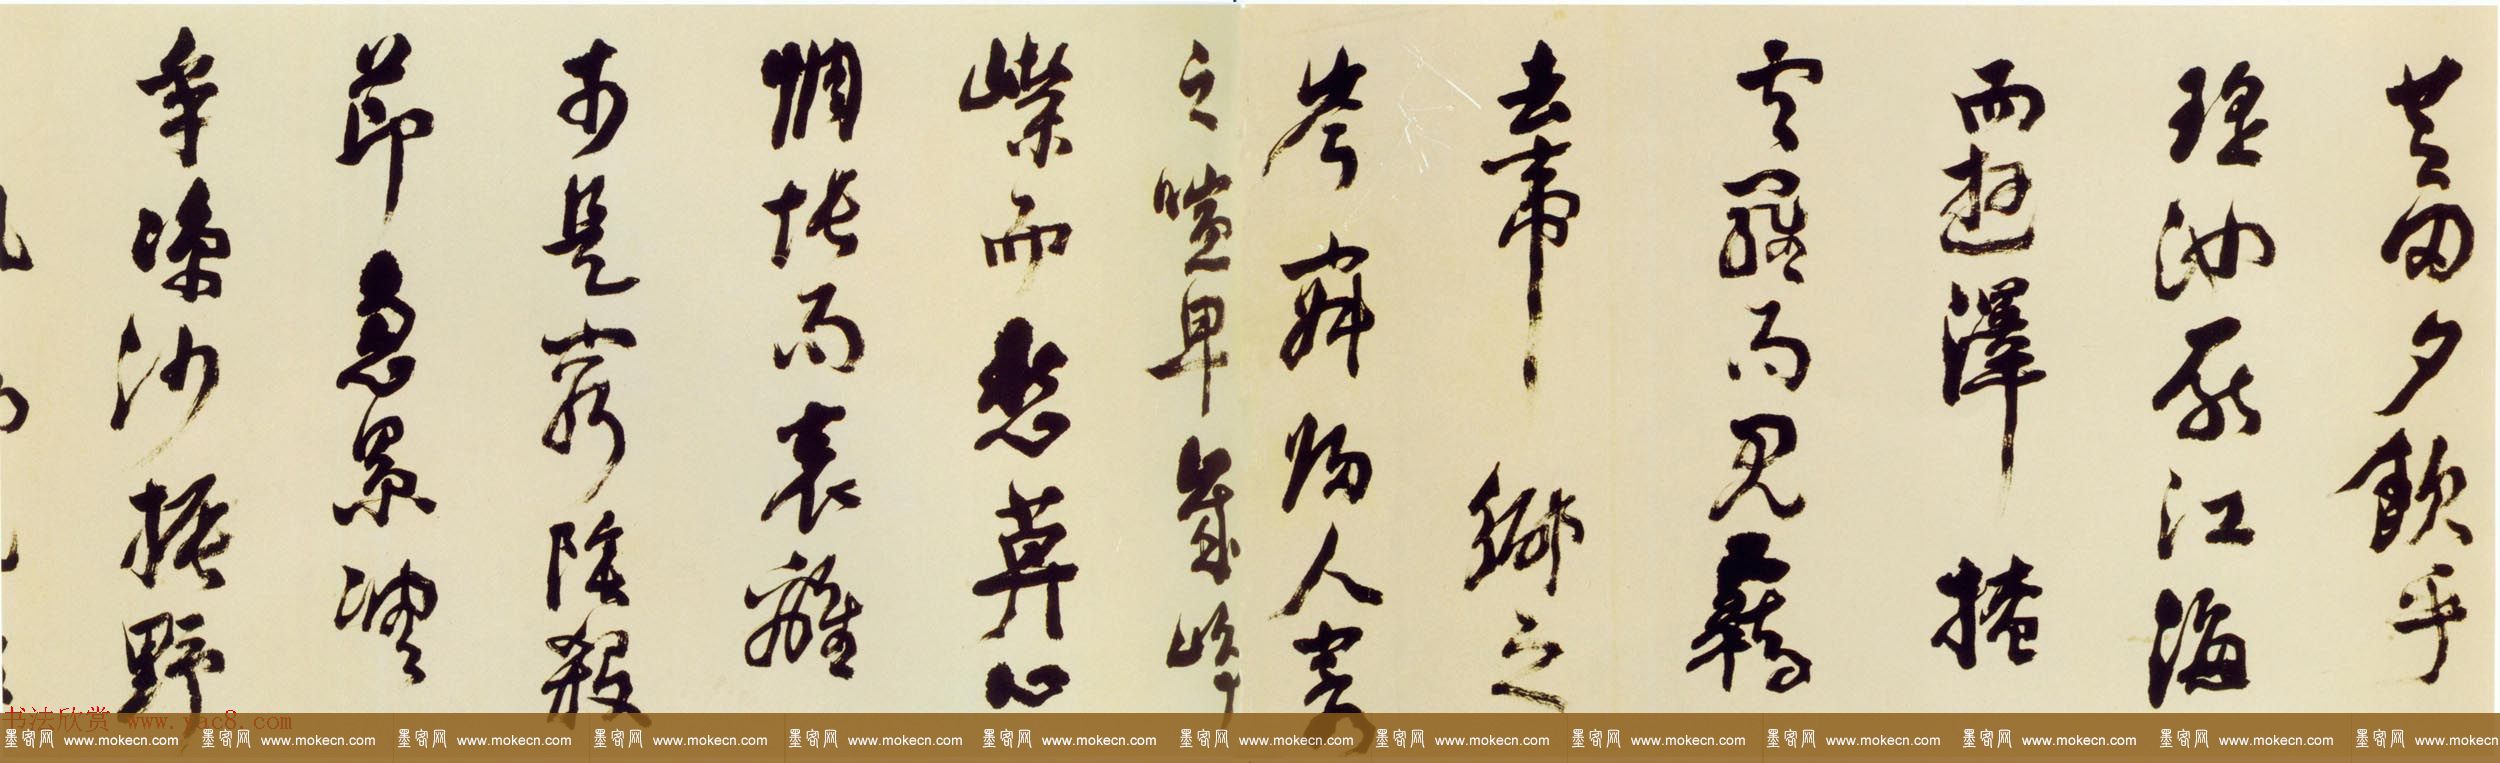 芝田夕飲乎
瑶池厭江海
而遊澤掩
雲羅而見羈
去帝鄉之
岑寂歸人寰
之喧卑歲崢
嶸而愁暮心
惆悵而哀離
於是窮陰殺
節急景凋
年涼沙振野
书法欣赏 www.yac8.com
墨客网 www.mokecn.com 墨客网 www.mokecn.com 墨客网 www.mokecn.com 墨客网 www.mokecn.com 墨客网 www.mokecn.com 墨客网 www.mokecn.com 墨客网 www.mokecn.com 墨客网 www.mokecn.com 墨客网 www.mokecn.com 墨客网 www.mokecn.com 墨客网 www.mokecn.com 墨客网 www.mokecn.com 墨客网 www.mokecn